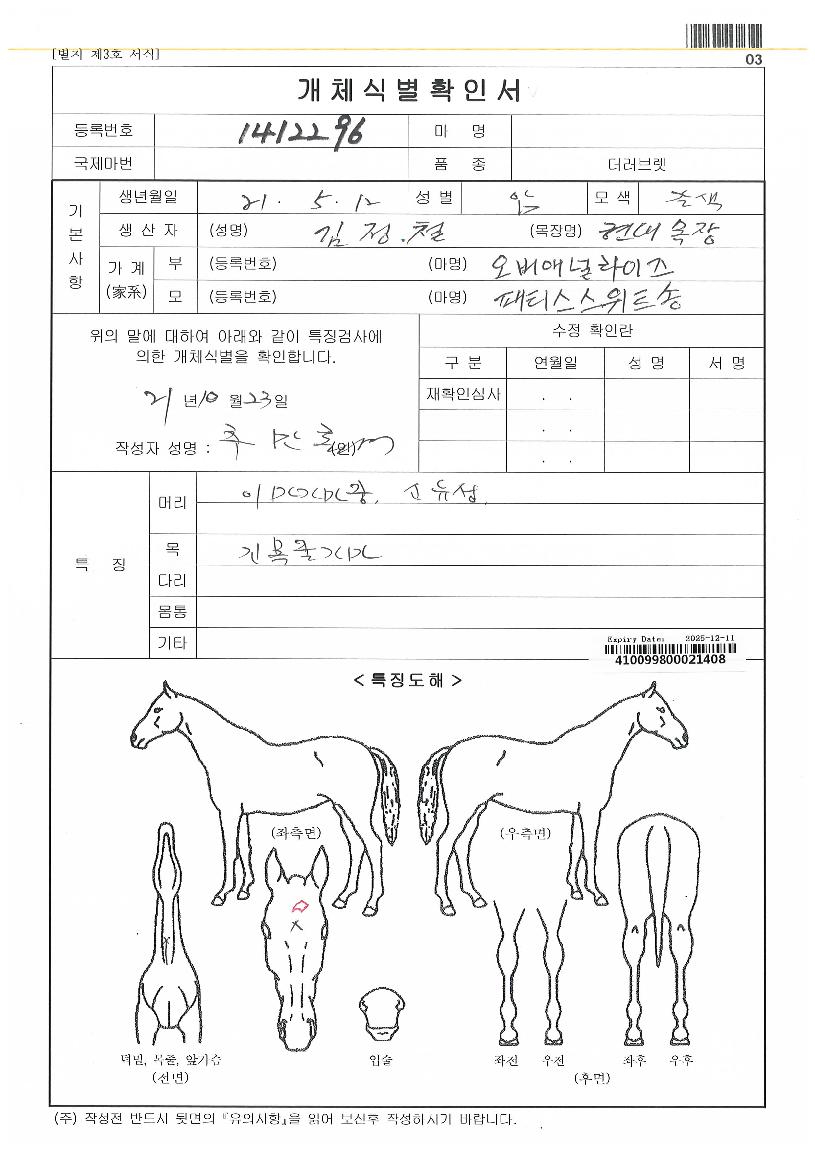 [별지 제3호 서식]
03
개체식별확인서
등록번호 1412296 마 명
국제마번 품 종 더러브렛
기본사항
생년월일 21. 5. 12 성별 암 모색
생산자 (성명) 김정철 (목장명) 현대목장
가계(家系) 부 (등록번호) (마명) 오버애널라이즈
모 (등록번호) (마명) 패티스스위트송
위의 말에 대하여 아래와 같이 특징검사에
의한 개체식별을 확인합니다.
21년 10월 23일
작성자 성명 : (인)
수정 확인란
구분 연월일 성명 서명
재확인심사 . .
. .
. .
특 징
머리
목
다리
몸통
기타
Expiry Date: 2025-12-11
410099800021408
< 특징도해 >
(좌측면) (우측면)
턱밑, 목줄, 앞가슴
(전면)
입술
좌전 우전 좌후 우후
(후면)
(주) 작성전 반드시 뒷면의 『유의사항』을 읽어 보신후 작성하시기 바랍니다.